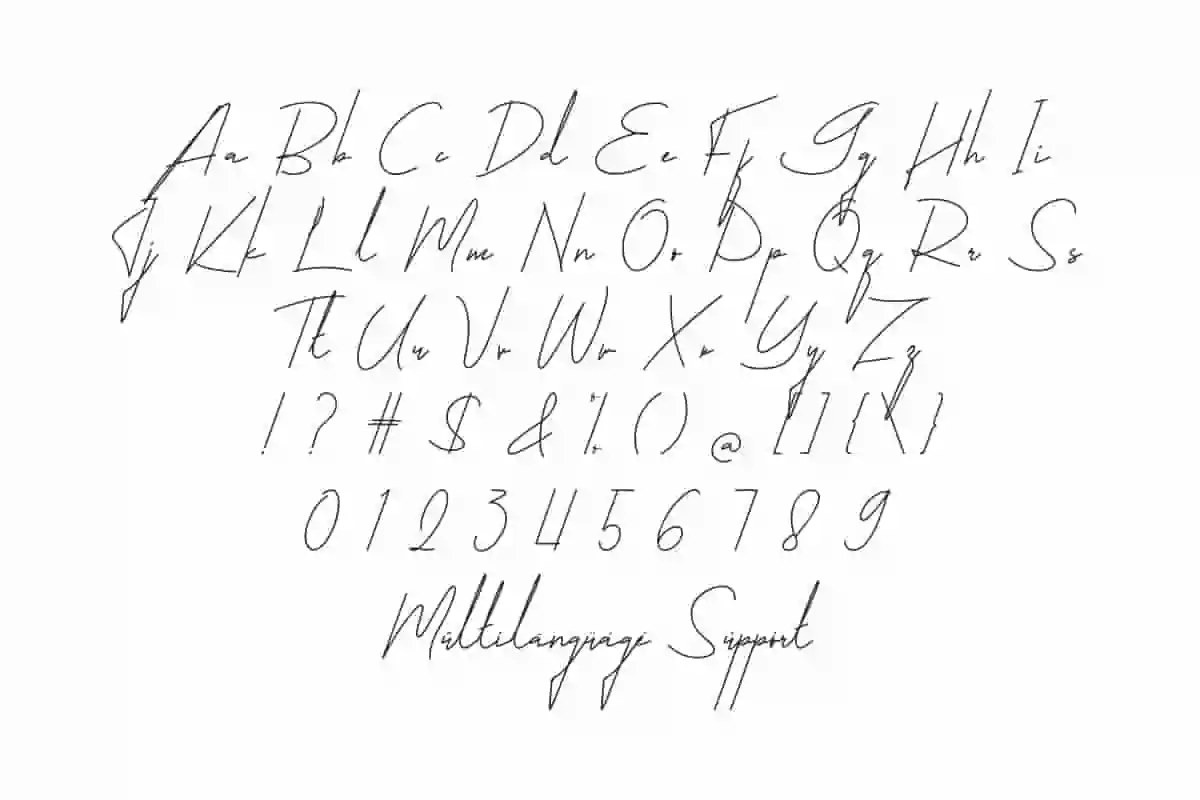 Aa Bb Cc Dd Ee Ff Gg Hh Ii
Jj Kk Ll Mm Nn Oo Pp Qq Rr Ss
Tt Uu Vv Ww Xx Yy Zz
! ? # $ & % ( ) @ [ ] { \ }
0 1 2 3 4 5 6 7 8 9
Múltilángüágé Súppórt